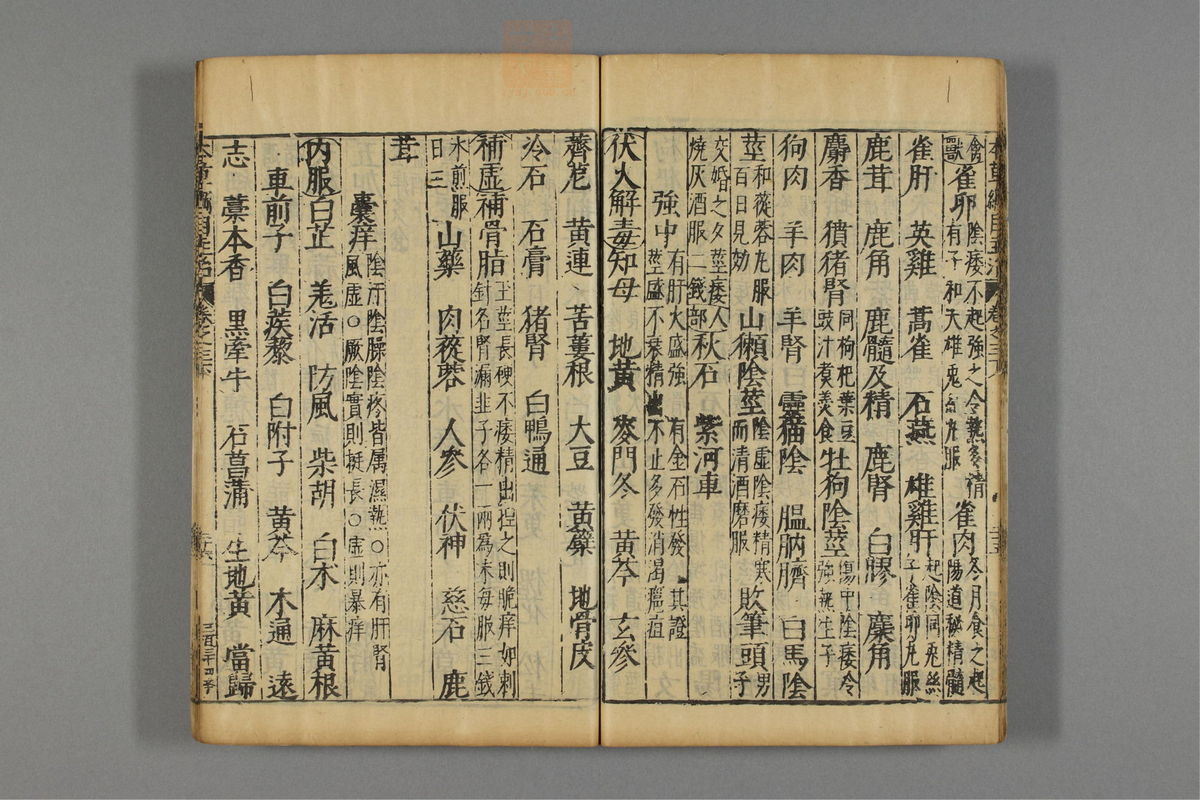 禽獸雀卵陰痿不起強之令熱多精有子和天雄兎絲丸服雀肉冬月食之起陽道秘精髓
雀肝　英雞　蒿雀　石燕　雄雞肝起陰同兎絲子雀卵丸服
鹿茸　鹿角　鹿髓及精　鹿腎　白膠　麋角
麝香　獖猪腎同枸杞葉豆豉汁煮羹食牡狗陰莖傷中陰痿令強熱生子
狗肉　羊肉　羊腎　靈猫陰　膃肭臍　白馬陰
莖和蓯蓉丸服百日見効山獺陰莖陰虛陰痿精寒而清酒磨服敗筆頭男子
交婚之夕莖痿燒灰酒服二錢人部秋石　紫河車
強中有肝火盛強莖盛不衰精出有金石性發其證不止多發消渴癰疽
伏火解毒知母　地黃　麥門冬　黃芩　玄參
薺苨　黃連　苦蔞根　大豆　黃蘗　地骨皮
冷石　石膏　猪腎　白鴨通
補虛補骨脂主莖長硬不痿精出捏之則脆痒如刺針名腎漏韭子各一兩爲末每服三錢
水煎服日三山藥　肉蓯蓉　人參　茯神　慈石　鹿
茸
囊痒陰汗陰臊陰疼皆属濕熱○亦有肝腎風虛○厥陰實則挺長○虛則暴痒
內服白芷　羌活　防風　柴胡　白朮　麻黃根
車前子　白蒺藜　白附子　黃芩　木通　遠
志　藁本香　黑牽牛　石菖蒲　生地黃　當歸